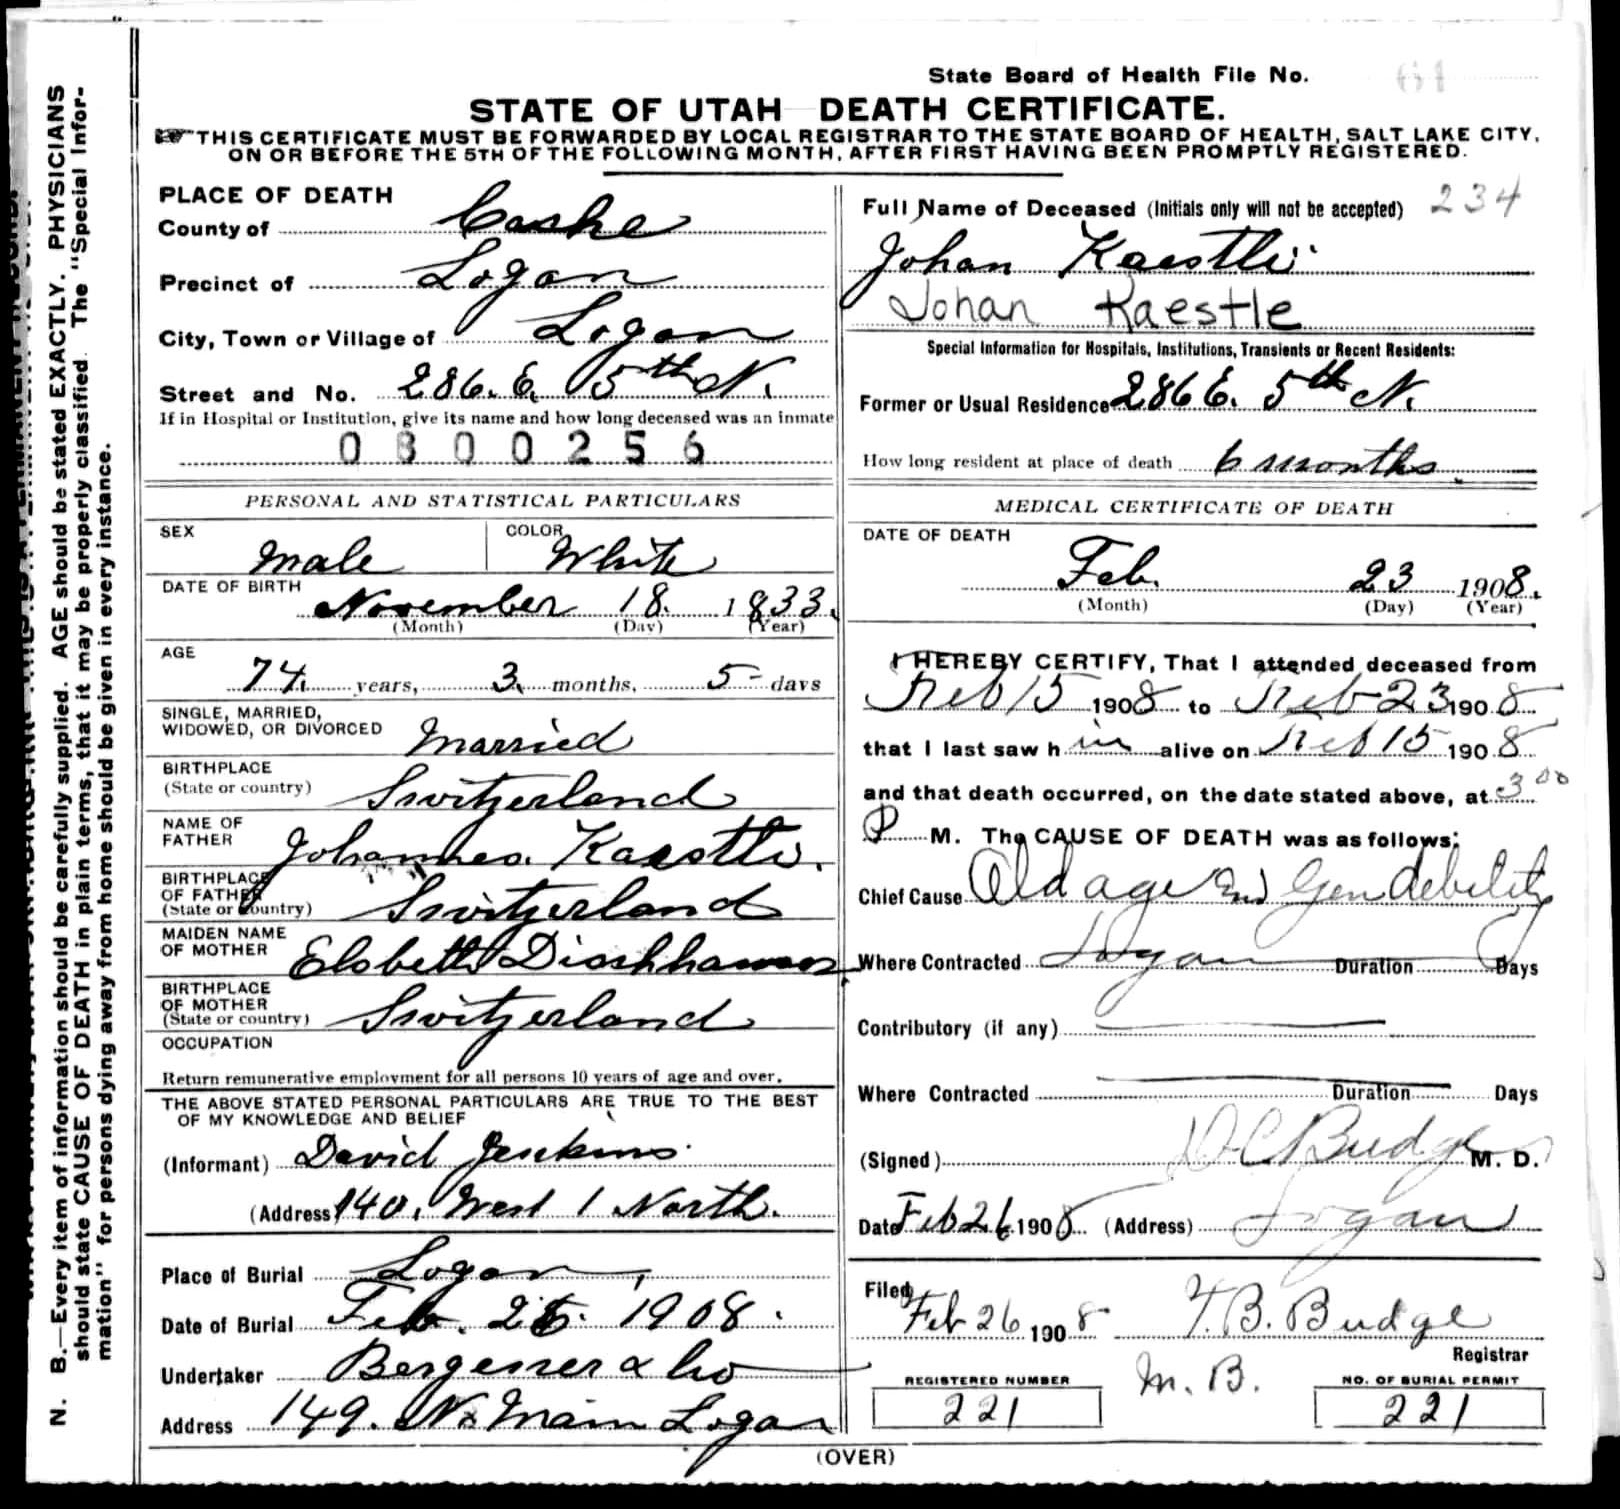 State Board of Health File No. 61
STATE OF UTAH DEATH CERTIFICATE.
THIS CERTIFICATE MUST BE FORWARDED BY LOCAL REGISTRAR TO THE STATE BOARD OF HEALTH, SALT LAKE CITY,
ON OR BEFORE THE 5TH OF THE FOLLOWING MONTH, AFTER FIRST HAVING BEEN PROMPTLY REGISTERED.
PLACE OF DEATH
County of Cache
Precinct of Logan
City, Town or Village of Logan
Street and No. 286. E. 5th N.
If in Hospital or Institution, give its name and how long deceased was an inmate
0300256
PERSONAL AND STATISTICAL PARTICULARS
SEX Male COLOR White
DATE OF BIRTH November 18. 1833.
(Month) (Day) (Year)
AGE
74 years, 3 months, 5 days
SINGLE, MARRIED,
WIDOWED, OR DIVORCED Married
BIRTHPLACE
(State or country) Switzerland
NAME OF
FATHER Johannes Kaestli.
BIRTHPLACE
OF FATHER
(State or country) Switzerland
MAIDEN NAME
OF MOTHER Elsbeth
BIRTHPLACE
OF MOTHER
(State or country) Switzerland
OCCUPATION
Return remunerative employment for all persons 10 years of age and over.
THE ABOVE STATED PERSONAL PARTICULARS ARE TRUE TO THE BEST
OF MY KNOWLEDGE AND BELIEF
(Informant) David Jenkins.
(Address) 140. West 1 North.
Place of Burial Logan,
Date of Burial Feb. 26. 1908.
Undertaker Bergener & Co
Address 149. N. Main Logan
Full Name of Deceased (Initials only will not be accepted) 234
Johan Kaestli
Johan Kaestle
Special Information for Hospitals, Institutions, Transients or Recent Residents:
Former or Usual Residence 286 E. 5th N.
How long resident at place of death 6 months.
MEDICAL CERTIFICATE OF DEATH
DATE OF DEATH
Feb. 23 1908.
(Month) (Day) (Year)
I HEREBY CERTIFY, That I attended deceased from
Feb 15 1908 to Feb 23 1908
that I last saw h im alive on Feb 15 1908
and that death occurred, on the date stated above, at 3 00
P M. The CAUSE OF DEATH was as follows:
Chief Cause Old age and Gen debility
Where Contracted Logan Duration Days
Contributory (if any)
Where Contracted Duration Days
(Signed) D C Budge M. D.
Date Feb 26 1908 (Address) Logan
Filed
Feb 26 1908 T. B. Budge
Registrar
REGISTERED NUMBER M. B. NO. OF BURIAL PERMIT
221 221
(OVER)
N. B.—Every item of information should be carefully supplied. AGE should be stated EXACTLY. PHYSICIANS
should state CAUSE OF DEATH in plain terms, that it may be properly classified. The "Special Infor-
mation" for persons dying away from home should be given in every instance.